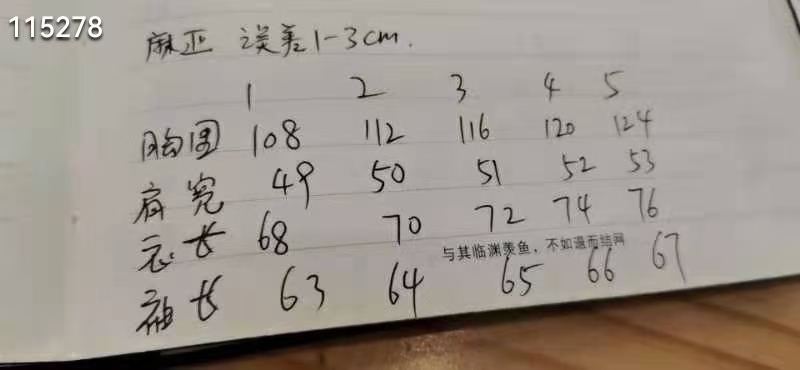 115278
麻亚 误差1-3cm.
1 2 3 4 5
胸围 108 112 116 120 124
肩宽 49 50 51 52 53
衣长 68 70 72 74 76
与其临渊羡鱼，不如退而结网
袖长 63 64 65 66 67